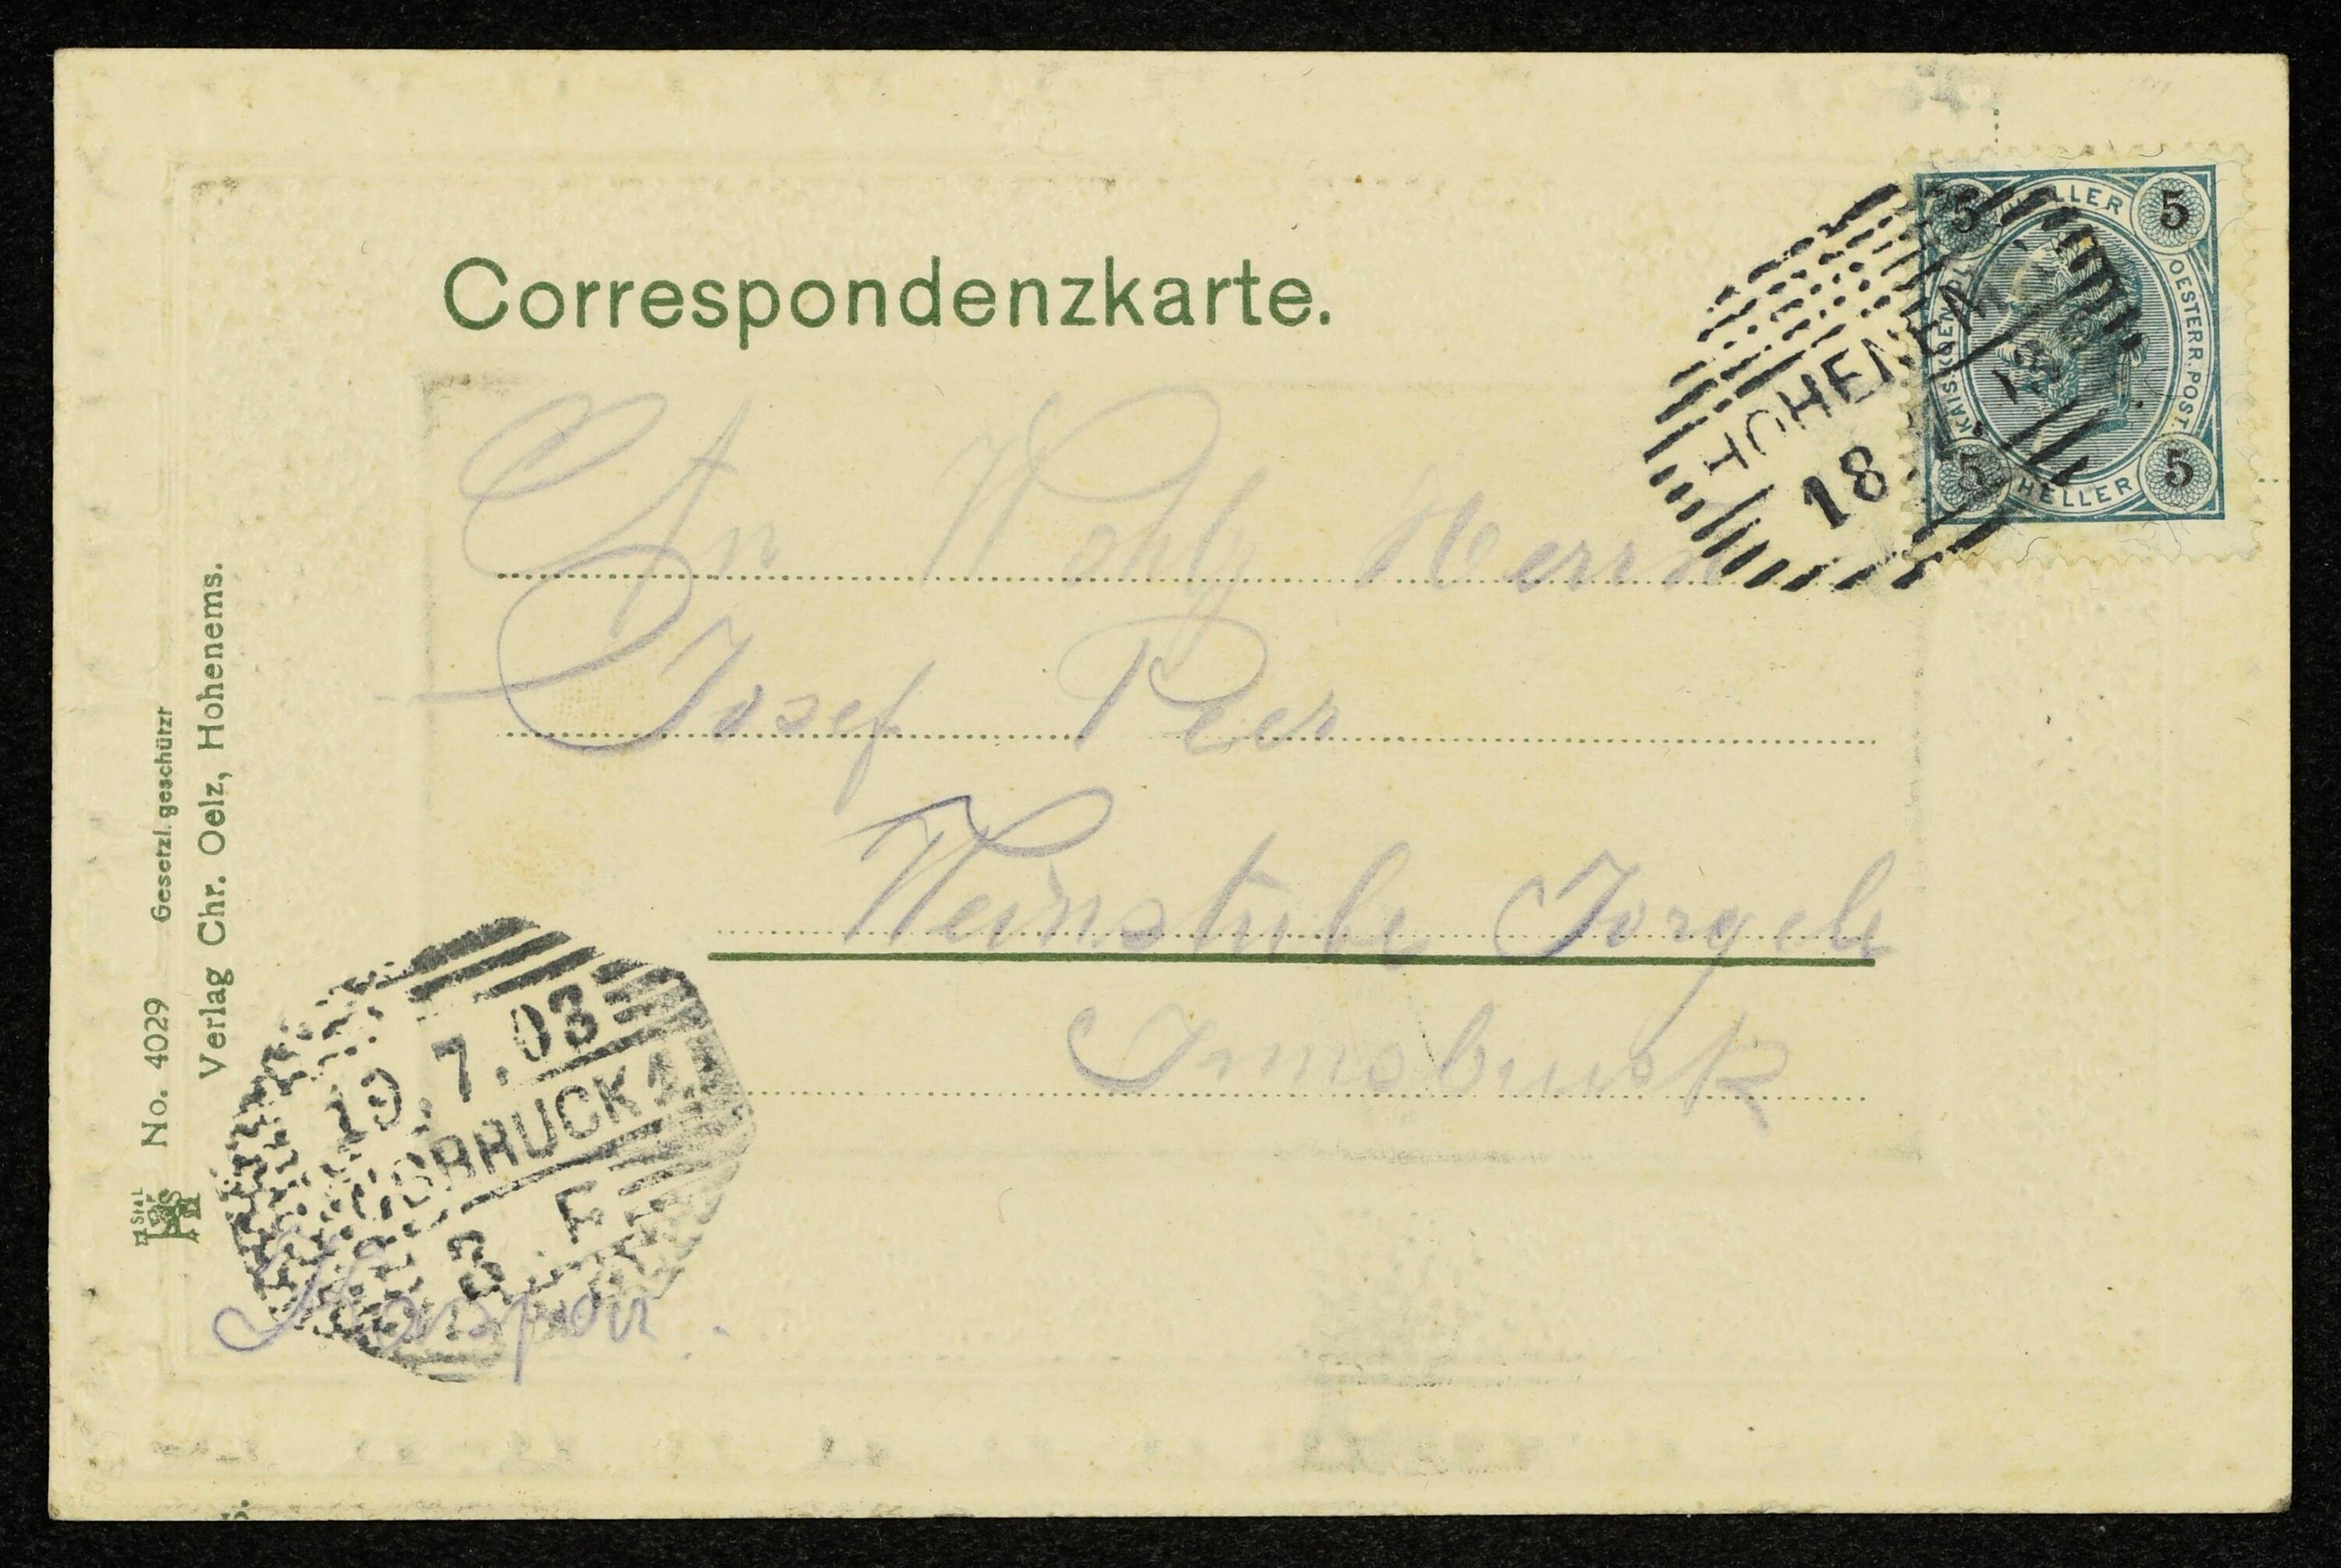 Correspondenzkarte.
5 HELLER 5
KAIS. KOEN. OESTERR. POST.
5 HELLER 5
HOHENEM
18
An Wohlg Herrn
Josef Peer
Weinstube Jörgele
Innsbruck
No. 4029 Gesetzl. geschützt
Verlag Chr. Oelz, Hohenems.
19. 7. 03
SBRUCK 1
3 F